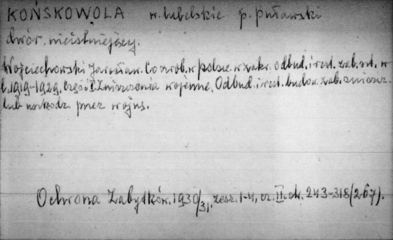 KOŃSKOWOLA w. lubelskie p. puławski
dwór, nieistniejący.
Wojciechowski Jarosław. Co zrob. w Polsce w zakr. odbud. i rest. zab. szt. w
l. 1919-1929. Część I. Zniszczenia wojenne. Odbud. i rest. budow. zab. zniszcz.
lub uszkodz. przez wojnę.
Ochrona Zabytków. 1930/31, zesz. 1-4, cz. II. ok. 243-318 (267).